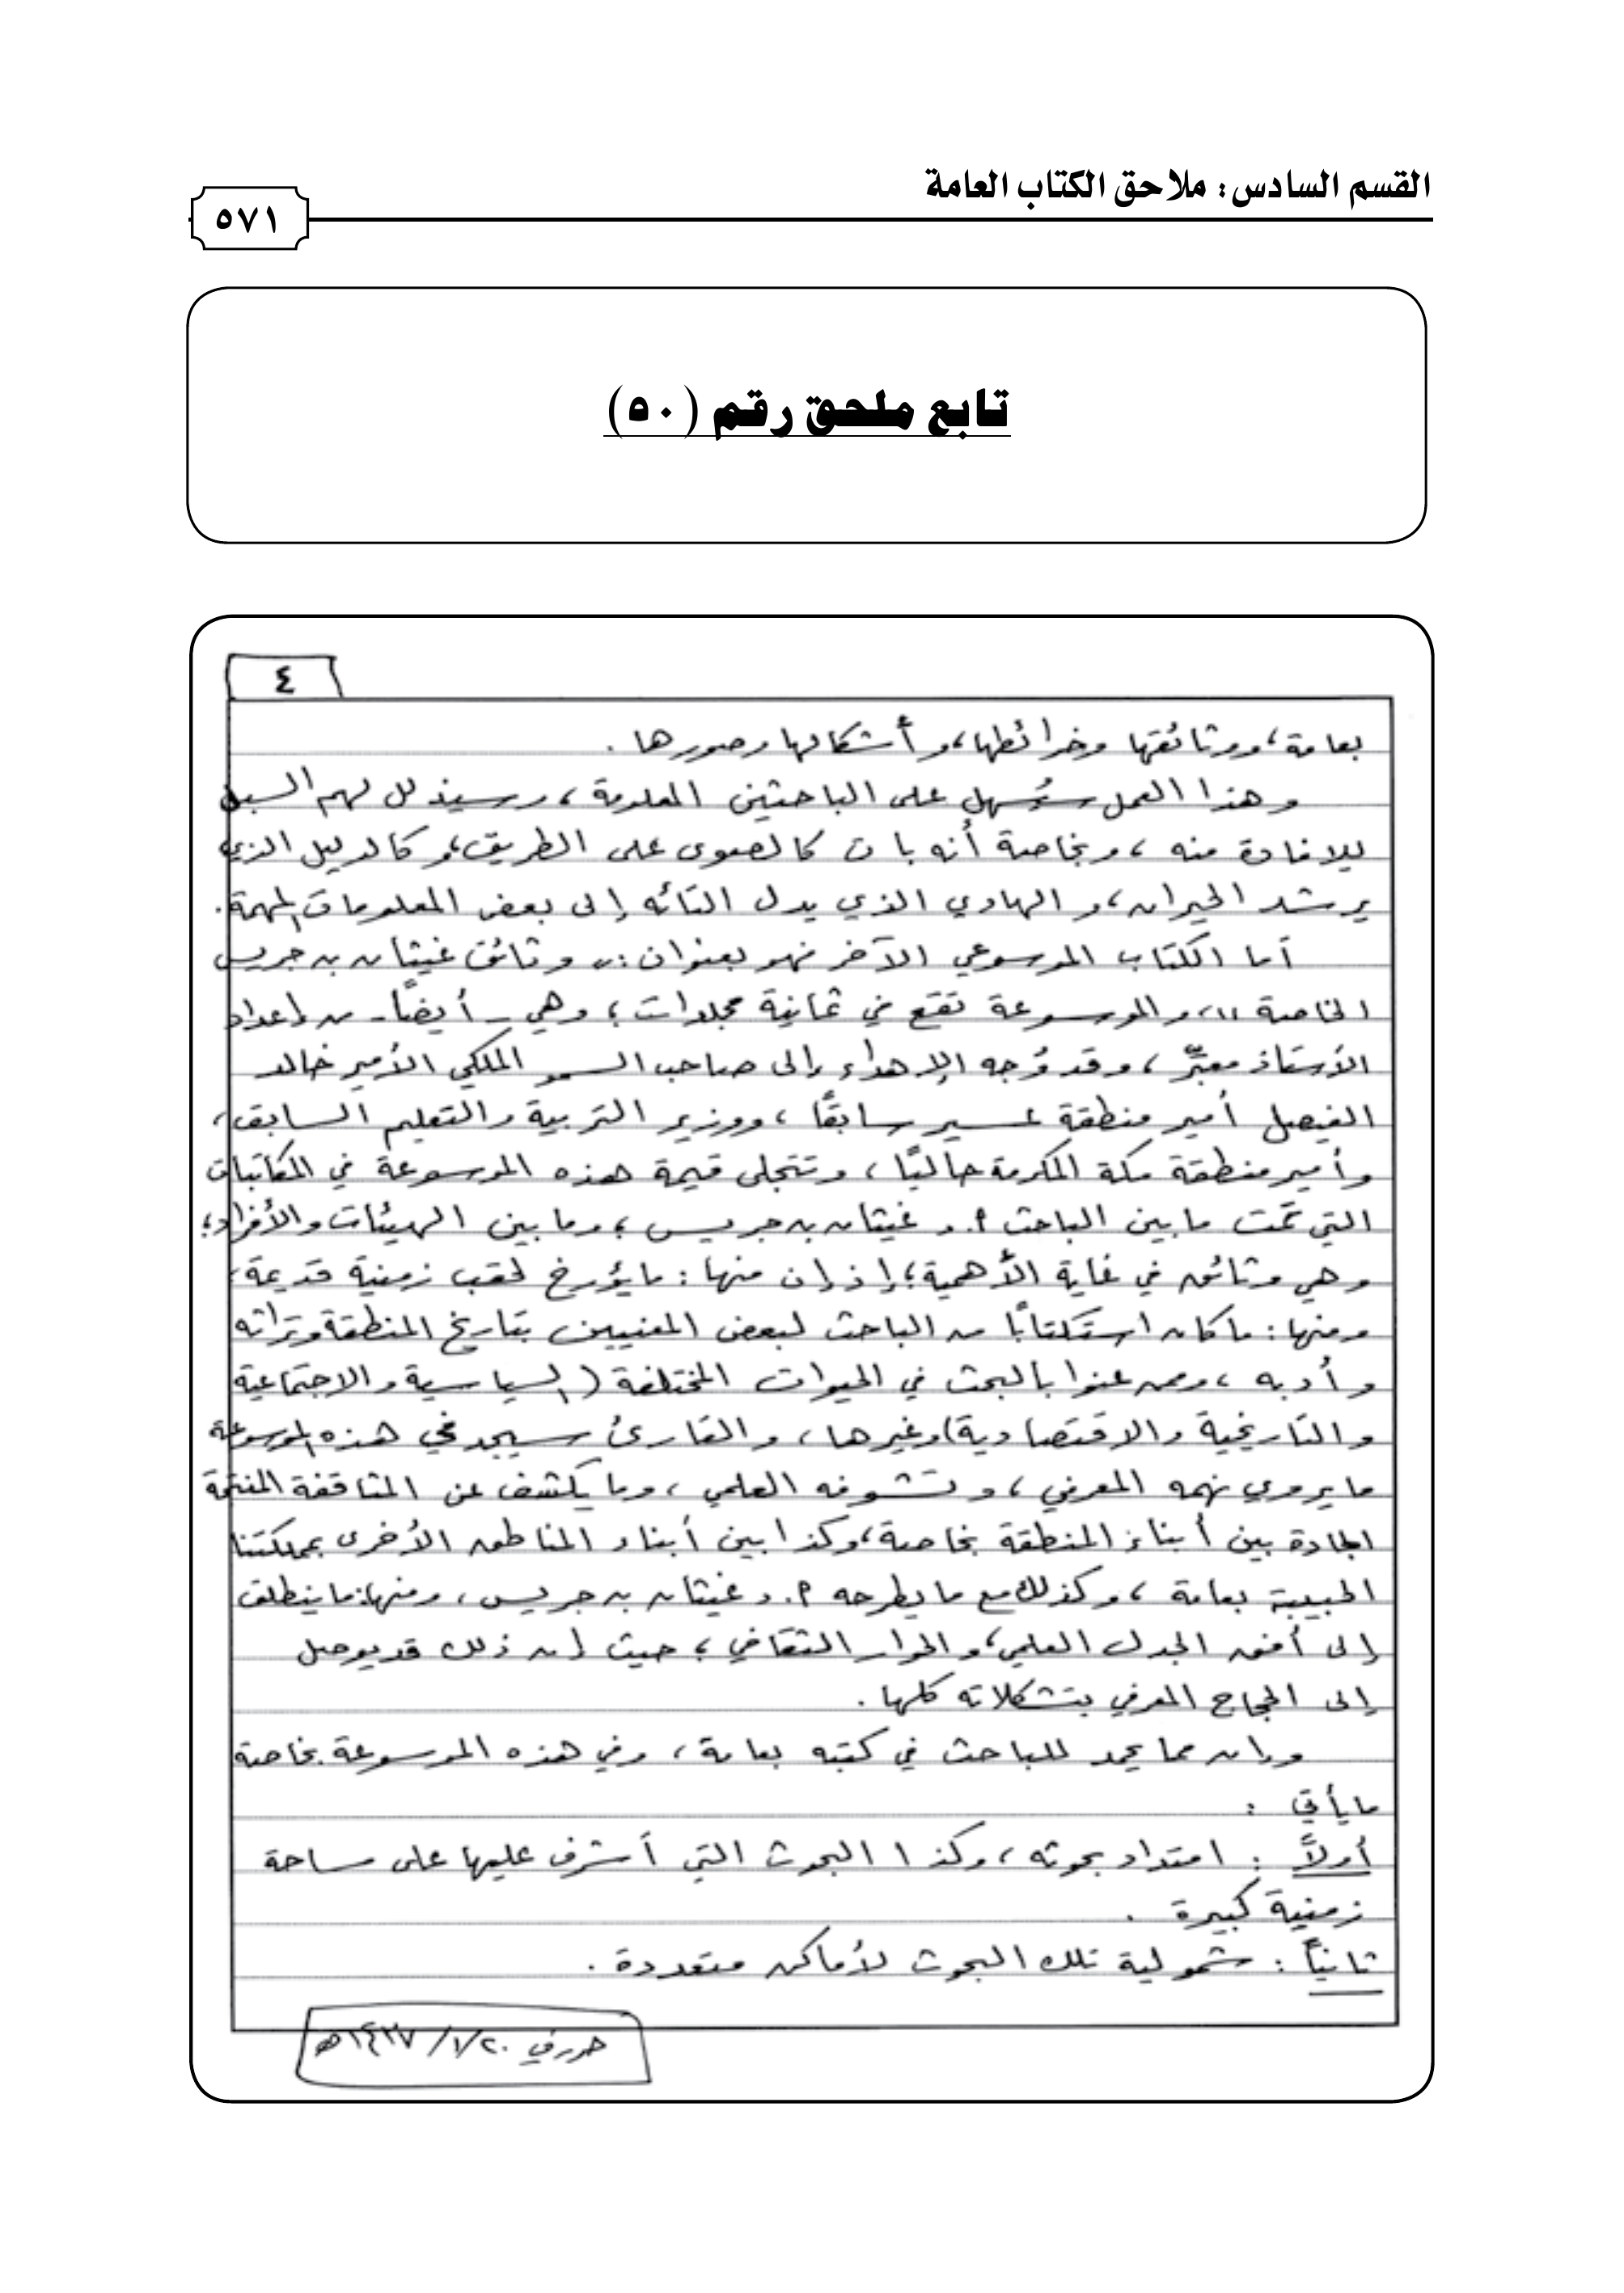 القسم السادس: ملاحق الكتاب العامة
٥٧١
تابع ملحق رقم (٥٠)
٤
بعامة، ووثائقها وخرائطها، وأشكالها وصورها .
وهذا العمل سيُسهل على الباحثين المعلومة ، وسيذلل لهم السبل
للإفادة منه ، وبخاصة أنه بات كالصوى على الطريق، وكالدليل الذي
يرشد الحيران، والهادي الذي يدل التائه إلى بعض المعلومات المهمة.
أما الكتاب الموسوعي الآخر فهو بعنوان: " وثائق غيثان بن جريس
الخاصة "، والموسوعة تقع في ثمانية مجلدات ؛ وهي - أيضًا - من إعداد
الأستاذ معبّر ، وقد وُجه الإهداء إلى صاحب السمو الملكي الأمير خالد
الفيصل أمير منطقة عسير سابقًا ، ووزير التربية والتعليم السابق،
وأمير منطقة مكة المكرمة حاليًا ، وتتجلى قيمة هذه الموسوعة في المكاتبات
التي تمت ما بين الباحث أ. د غيثان بن جريس ؛ وما بين الهيئات والأفراد؛
وهي وثائق في غاية الأهمية؛ إذ إن منها : ما يؤرخ لحقب زمنية قديمة،
ومنها : ما كان استكتابًا من الباحث لبعض المعنيين بتاريخ المنطقة وتراثه
وأدبه ، وممن عنوا بالبحث في الحيوات المختلفة (السياسية والاجتماعية
والتاريخية والاقتصادية) وغيرها ، والقارئ سيجد في هذه الموسوعة
ما يروي نهمه المعرفي ، وتشوفه العلمي ، وما يكشف عن المثاقفة المنتجة
الجادة بين أبناء المنطقة بخاصة، وكذا بين أبناء المناطق الأخرى بمملكتنا
الحبيبة بعامة ، وكذلك مع ما يطرحه أ. د غيثان بن جريس ، ومنها: ما ينطلق
إلى أفق الجدل العلمي، والحوار الثقافي ؛ حيث إن ذلك قد يوصل
إلى الحجاج المعرفي بتشكلاته كلها .
وإن مما يحمد للباحث في كتبه بعامة ، وفي هذه الموسوعة بخاصة
ما يأتي :
أولاً : امتداد بحوثه ، وكذا البحوث التي أشرف عليها على مساحة
زمنية كبيرة .
ثانياً : شمولية تلك البحوث لأماكن متعددة .
حرر في ٢٠/١/١٤٣٧هـ